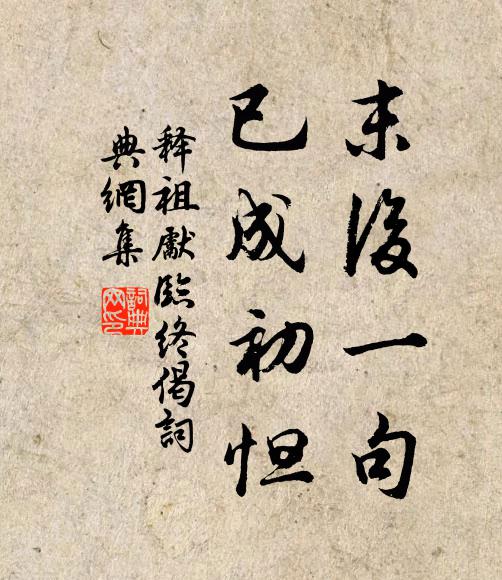 末後一句
已成初怛
释祖獻臨终偈詞
典網集
詞典网印